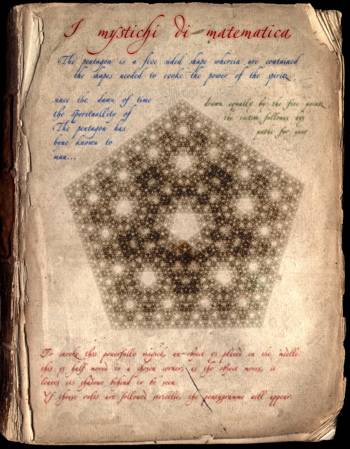 I mystichi di matematica
The pentagon is a five sided shape wherein are contained
the shapes needed to evoke the power of the spirits
since the dawn of time
the spirituality of
The pentagon has
bene known to
man...
drawn equally by the five points
the custom follows any
paths for your
To invoke this powerfulls magick, an object is placed in the midle
this is half moved to a chosen corner, as the object moves, it
leaves its shadows behind to be seen
If those rules are followed percicely, the pentagramme will appear